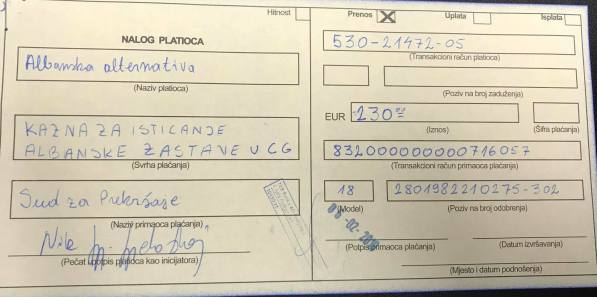 Hitnost
NALOG PLATIOCA
Albanska alternativa
(Naziv platioca)
KAZNA ZA ISTICANJE
ALBANSKE ZASTAVE U CG
(Svrha plaćanja)
Sud za Prekršaje
(Naziv primaoca plaćanja)
(Pečat i potpis platioca kao inicijatora)
Prenos X Uplata Isplata
530-21472-05
(Transakcioni račun platioca)
(Poziv na broj zaduženja)
EUR 230,00
(Iznos) (Šifra plaćanja)
832000000000716057
(Transakcioni račun primaoca plaćanja)
18 2801982210275-302
(Model) (Poziv na broj odobrenja)
(Potpis primaoca plaćanja) (Datum izvršavanja)
(Mjesto i datum podnošenja)